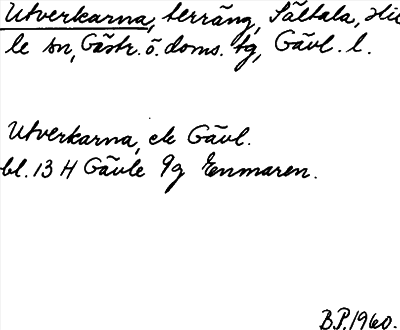 Utverkarna, terräng, Sältala, Hil
le sn, Gästr. ö. doms. tg, Gävl. l.
Utverkarna, ek Gävl.
bl. 13 H Gävle 9g Enmaren.
B.P. 1960.